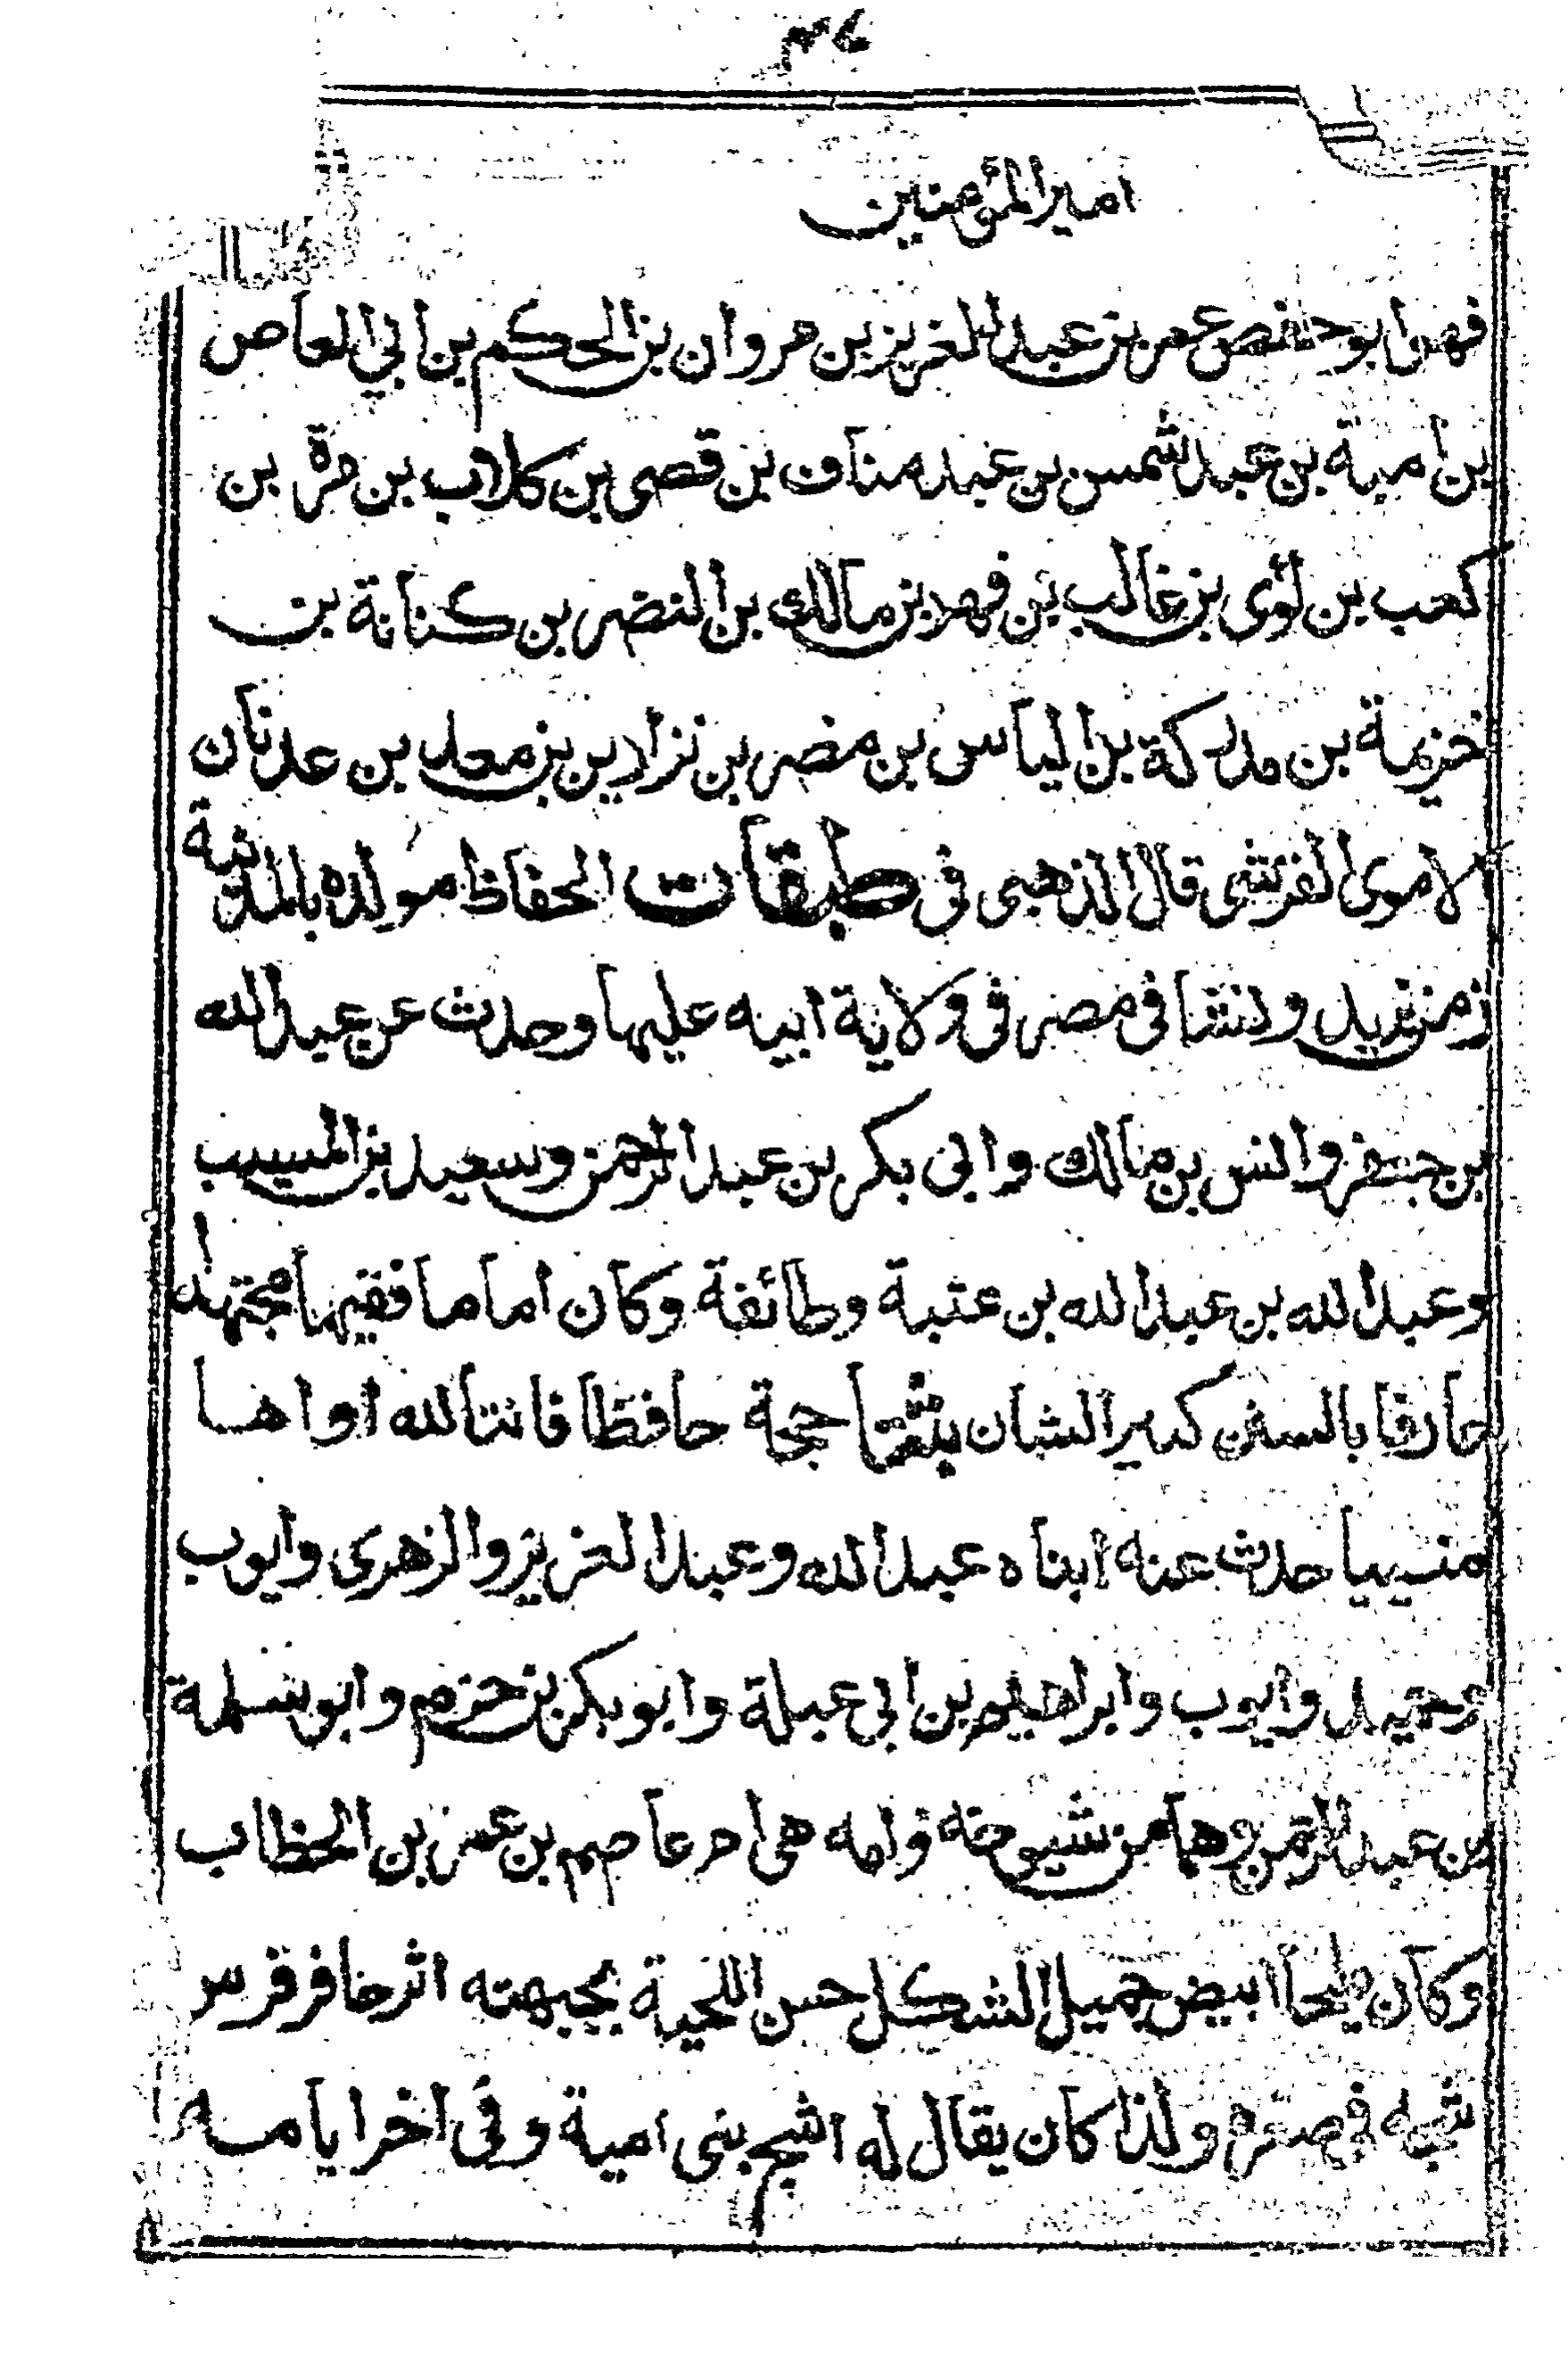 امير المؤمنين
فهو ابو حفص عمر بن عبد العزيز بن مروان بن الحكم بن ابي العاص
بن امية بن عبد شمس بن عبد مناف بن قصى بن كلاب بن مرة بن
كعب بن لؤى بن غالب بن فهر بن مالك بن النضر بن كنانة بن
خزيمة بن مدركة بن الياس بن مضر بن نزار بن معد بن عدنان
الاموى القرشى قال الذهبى فى طبقات الحفاظ مولده بالمدينة
زمن يزيد ونشا فى مصر فى ولاية ابيه عليها وحدث عن عبد الله
بن جعفر وانس بن مالك وابى بكر بن عبد الرحمن وسعيد بن المسيب
وعبد الله بن عبد الله بن عتبة وطائفة وكان اماما فقيها مجتهدا
عارفا بالسنن كبير الشان حجة حافظا قانتا لله اواها
منيبا حدث عنه ابناه عبد الله وعبد العزيز والزهرى وايوب
وحميد وايوب وابراهيم بن ابي عبلة وابو بكر بن حزم وابو سلمة
بن عبد الرحمن وهما من شيوخه وامه هى ام عاصم بن عمر بن الخطاب
وكان مليحا ابيض جميل الشكل حسن اللحية بجبهته اثر حافر فرس
شجه فى صغره ولذا كان يقال له اشج بنى امية وفى اخر ايامه